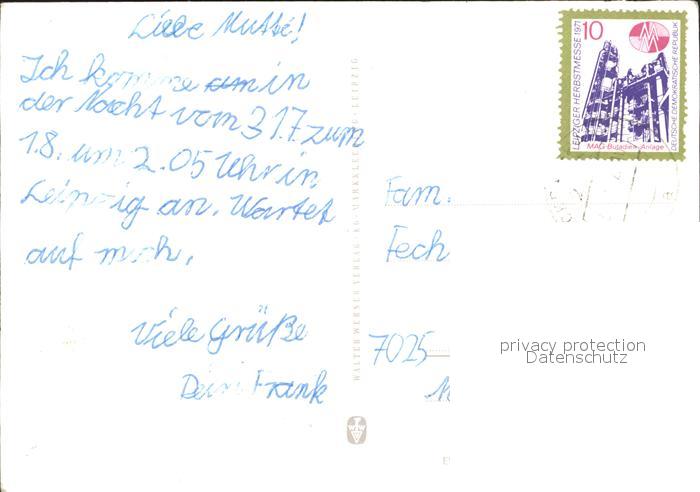 Liebe Mutti!
Ich komme am in
der Nacht vom 31.7 zum
1.8. um 2.05 Uhr in
Leipzig an. Wartet
auf mich,
Viele Grüße
Dein Frank
WALTER WERNER VERLAG KG · MARKKLEEBERG-LEIPZIG
10
LEIPZIGER HERBSTMESSE 1971
DEUTSCHE DEMOKRATISCHE REPUBLIK
MAG-Butadien-Anlage
Fam.
Fech
7025
privacy protection
Datenschutz